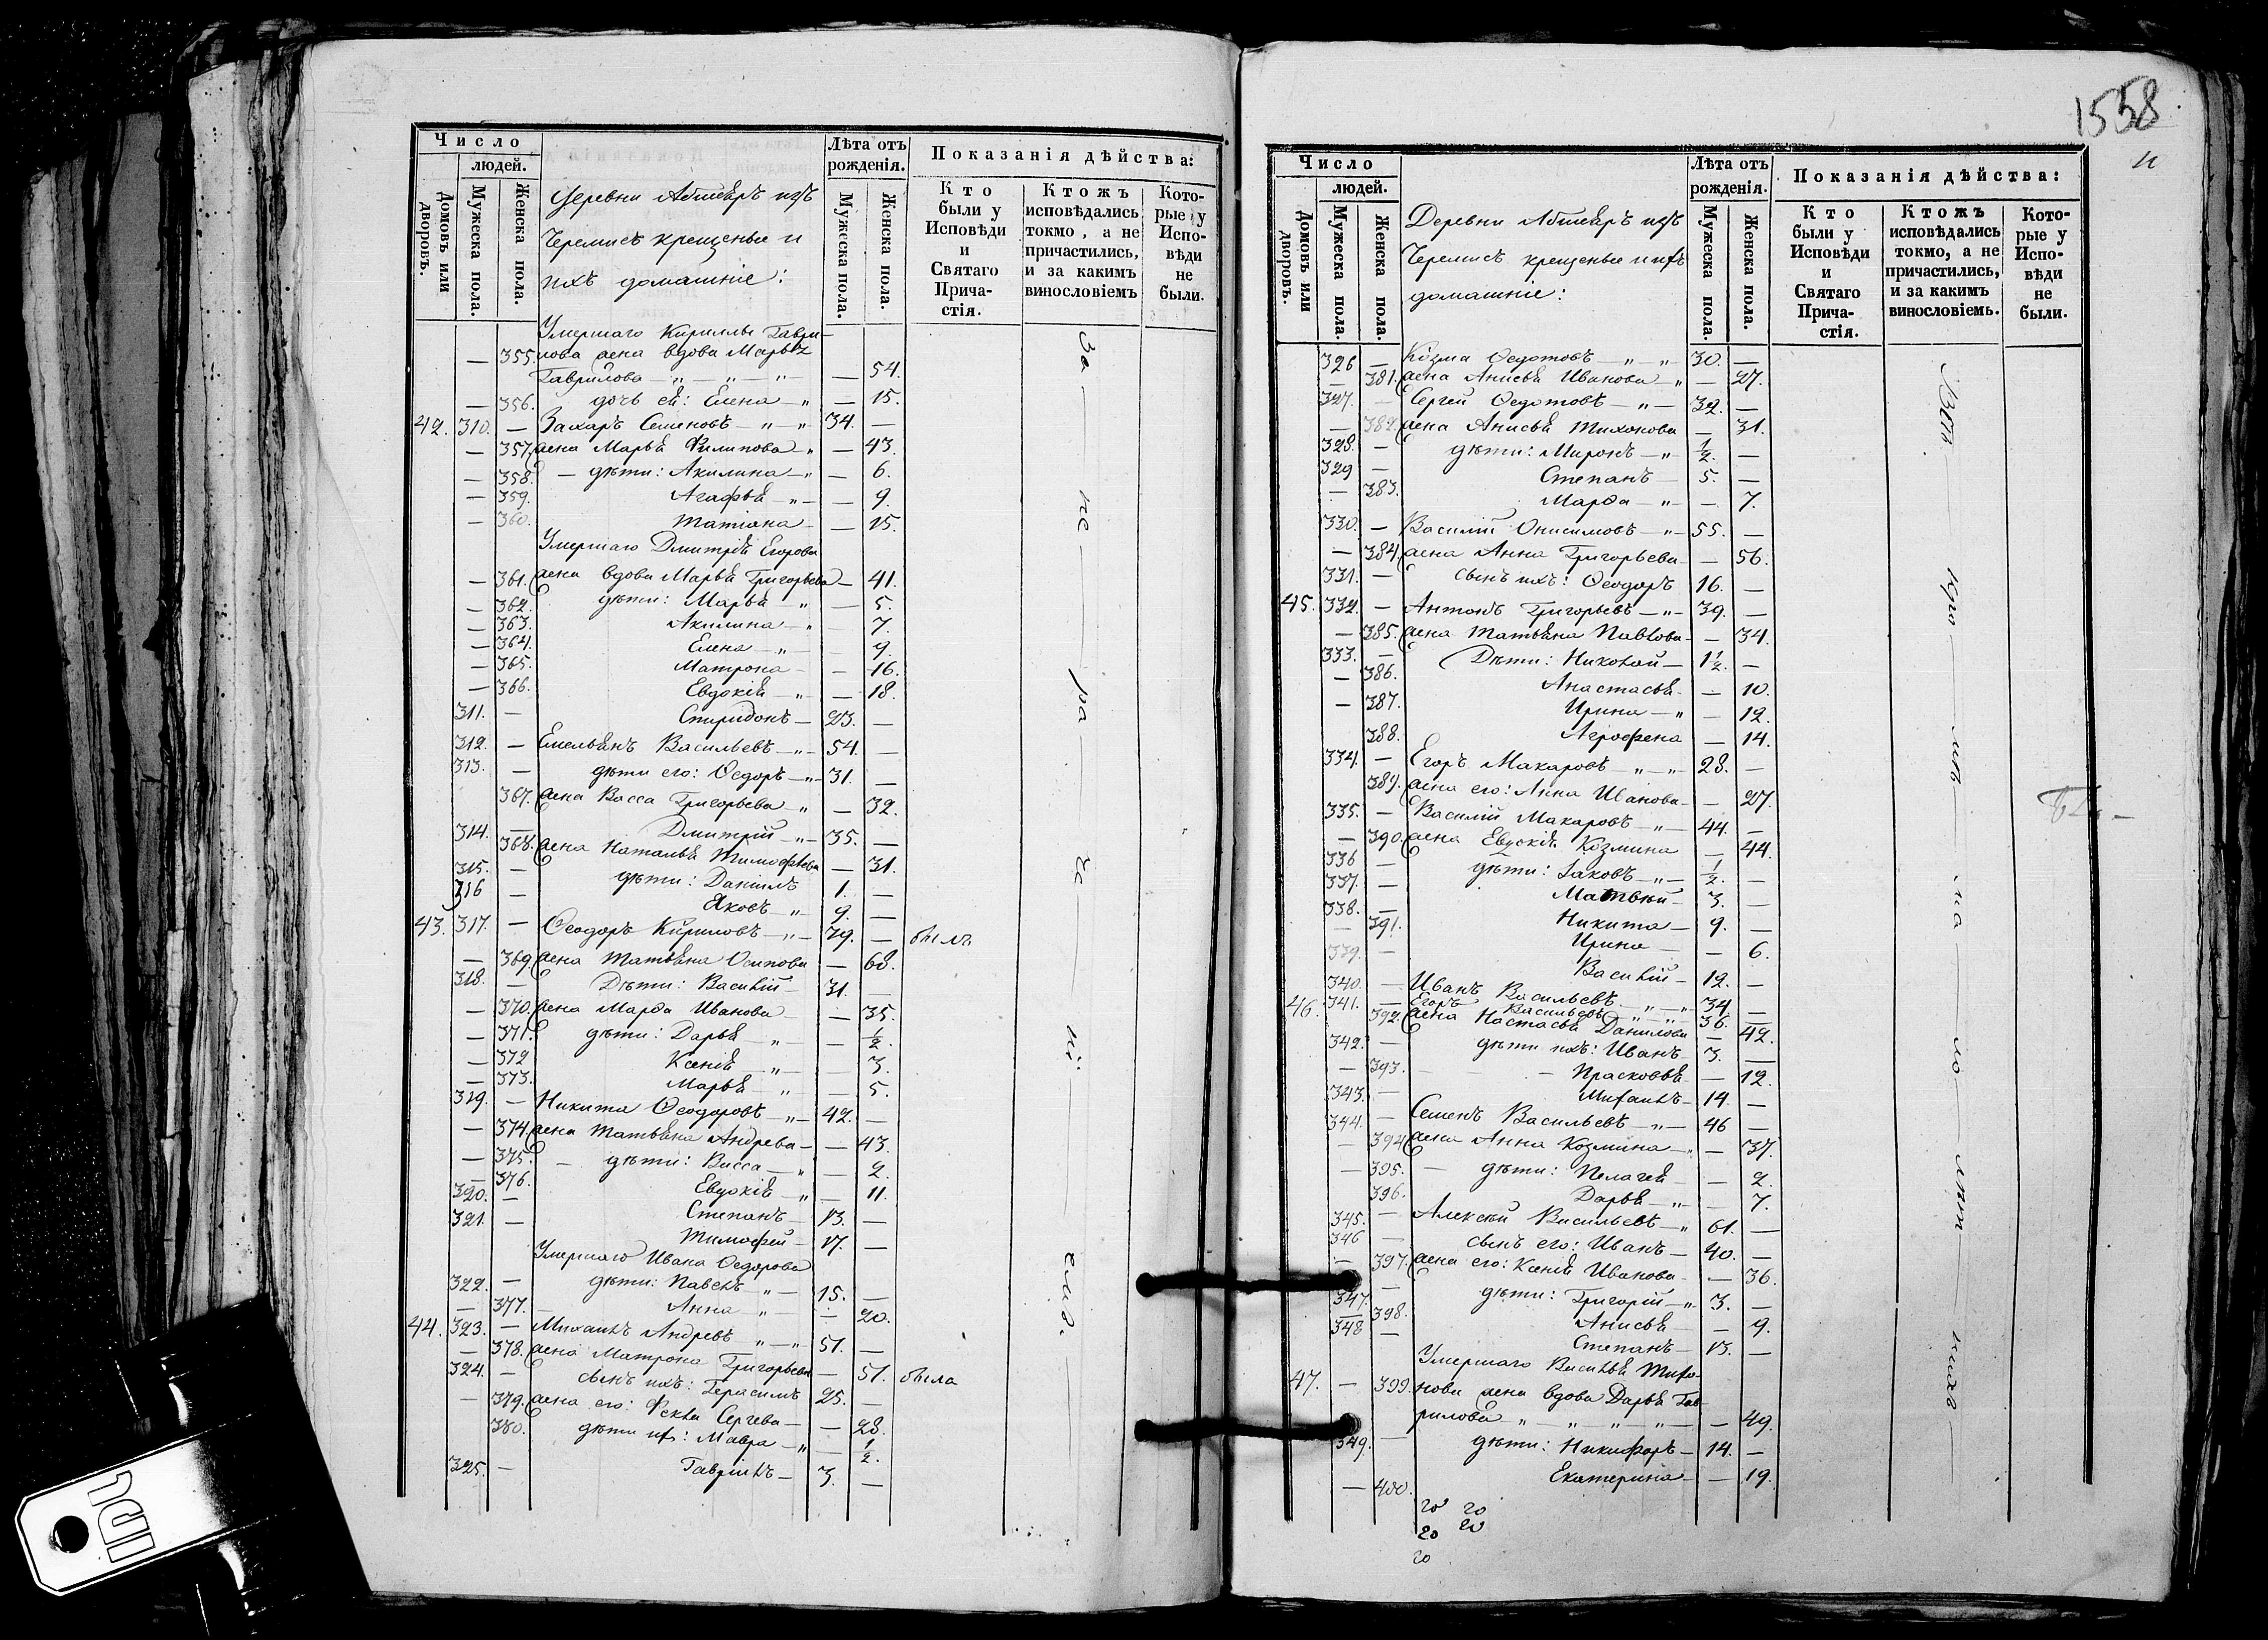 Число
людей.
Домовъ или дворовъ.
Мужеска пола.
Женска пола.
Деревни Абшеаръ изъ
Черемисъ крещеные и
ихъ домашніе:
Лѣта отъ рожденія.
Мужеска пола.
Женска пола.
Показанія дѣйства:
Кто были у Исповѣди и Святаго Прича-стія.
Ктожъ исповѣдались токмо, а не причастились, и за какимъ винословіемъ
Кото-рые у Испо-вѣди не были.
Умершаго Кириллы Гаври-
— 355. лова жена вдова Марья
Гаврилова — 54.
— 356. дочь ея: Елена — 15.
42. 310. — Захаръ Семеновъ 34. —
— 357. жена Марья Филипова — 43.
— 358. дѣти: Акилина — 6.
— 359. Агафья — 9.
— 360. Татіана — 15.
Умершаго Дмитрія Егорова
— 361. жена вдова Марья Григорьева — 41.
— 362. дѣти: Марья — 5.
— 363. Акилина — 7.
— 364. Елена — 9.
— 365. Матрона — 16.
— 366. Евдокія — 18.
311. — Спиридонъ 23. —
312. — Емельянъ Васильевъ 54. —
313. — дѣти его: Ѳедоръ 31. —
367. жена Васса Григорьева — 32.
314. — Дмитрій 35. —
368. жена Наталья Тимофѣева — 31.
315. — дѣти: Даніилъ 1. —
316 — Яковъ 9. —
43. 317. — Ѳеодоръ Кириловъ 79. — былъ
— 369. жена Татьяна Осипова — 68.
318. — Дѣти: Василій 31. —
— 370. жена Марѳа Иванова — 35.
— 371. дѣти: Дарья — 1/2.
— 372 Ксенія — 3.
— 373. Марья — 5.
319. — Никита Ѳеодоровъ 42. —
— 374. жена Татьяна Андрева — 43.
— 375. дѣти: Васса — 2.
— 376. Евдокія — 11.
320. — Степанъ 13. —
321. — Тимофей 17. —
Умершаго Ивана Ѳедорова
322. — дѣти: Павелъ 15. —
— 377. Анна — 20.
44. 323. — Михаилъ Андревъ 51. —
— 378. жена Матрона Григорьева — 51. была
324. — сынъ ихъ: Герасимъ 25. —
— 379. жена его: Ѳекла Сергева — 28.
380. дѣти их: Мавра — 1/2.
325. — Гавріилъ 3. —
За не ра че ні емъ.
1558
и
Число
людей.
Домовъ или дворовъ.
Мужеска пола.
Женска пола.
Деревни Абшеаръ изъ
Черемисъ крещеные и ихъ
домашніе:
Лѣта отъ рожденія.
Мужеска пола.
Женска пола.
Показанія дѣйства:
Кто были у Исповѣди и Святаго Прича-стія.
Ктожъ исповѣдались токмо, а не причастились, и за какимъ винословіемъ.
Кото-рые у Испо-вѣди не были.
326 — Козма Ѳедотовъ 30. —
— 381. жена Анисья Иванова — 27.
327. — Сергей Ѳедотовъ 32. —
— 382. жена Анисья Тихонова — 31.
328. — дѣти: Миронъ 1/2. —
329 — Степанъ 5. —
— 383. Марѳа — 7.
330. — Василій Онисимовъ 55. —
— 384. жена Анна Григорьева — 56.
331. — сынъ ихъ: Ѳеодоръ 16. —
45. 332. — Антонъ Григорьевъ 39. —
— 385. жена Татьяна Павлова — 34.
333. — Дѣти: Николай 1 1/2. —
— 386. Анастасья — 10.
— 387. Ирина — 12.
388. Агрофена — 14.
334. — Егоръ Макаровъ 28. —
389. жена его: Анна Иванова — 27.
335. — Василій Макаровъ 44. —
— 390. жена Евдокія Козмина — 44.
336 — дѣти: Іаковъ 1/2. —
337. — Матвѣй 3. —
338. — Никита 9. —
— 391. Ирина — 6.
339. — Василій 12. —
340. — Иванъ Васильевъ 34 —
46. 341. — Егоръ Васильевъ 36. —
392. жена Настасья Данилова — 42.
342. — дѣти ихъ: Иванъ 3. —
— 393. Прасковья — 12.
343. — Михаилъ 14. —
344. — Семенъ Васильевъ 46 —
— 394 жена Анна Козмина — 37.
— 395. дѣти: Пелагея — 2.
396. Дарья — 7.
345. — Алексѣй Васильевъ 61. —
346 — сынъ его: Иванъ 40. —
— 397. жена его: Ксенія Иванова — 36.
347. — дѣти: Григорій 3. —
— 398. Анисья — 9.
348 — Степанъ 13. —
Умершаго Василья Тихо-
47. — 399. нова жена вдова Дарья Гав-
рилова — 49.
349. — дѣти: Никифоръ 14. —
— 400. Екатерина — 19.
20 20
20 20
20